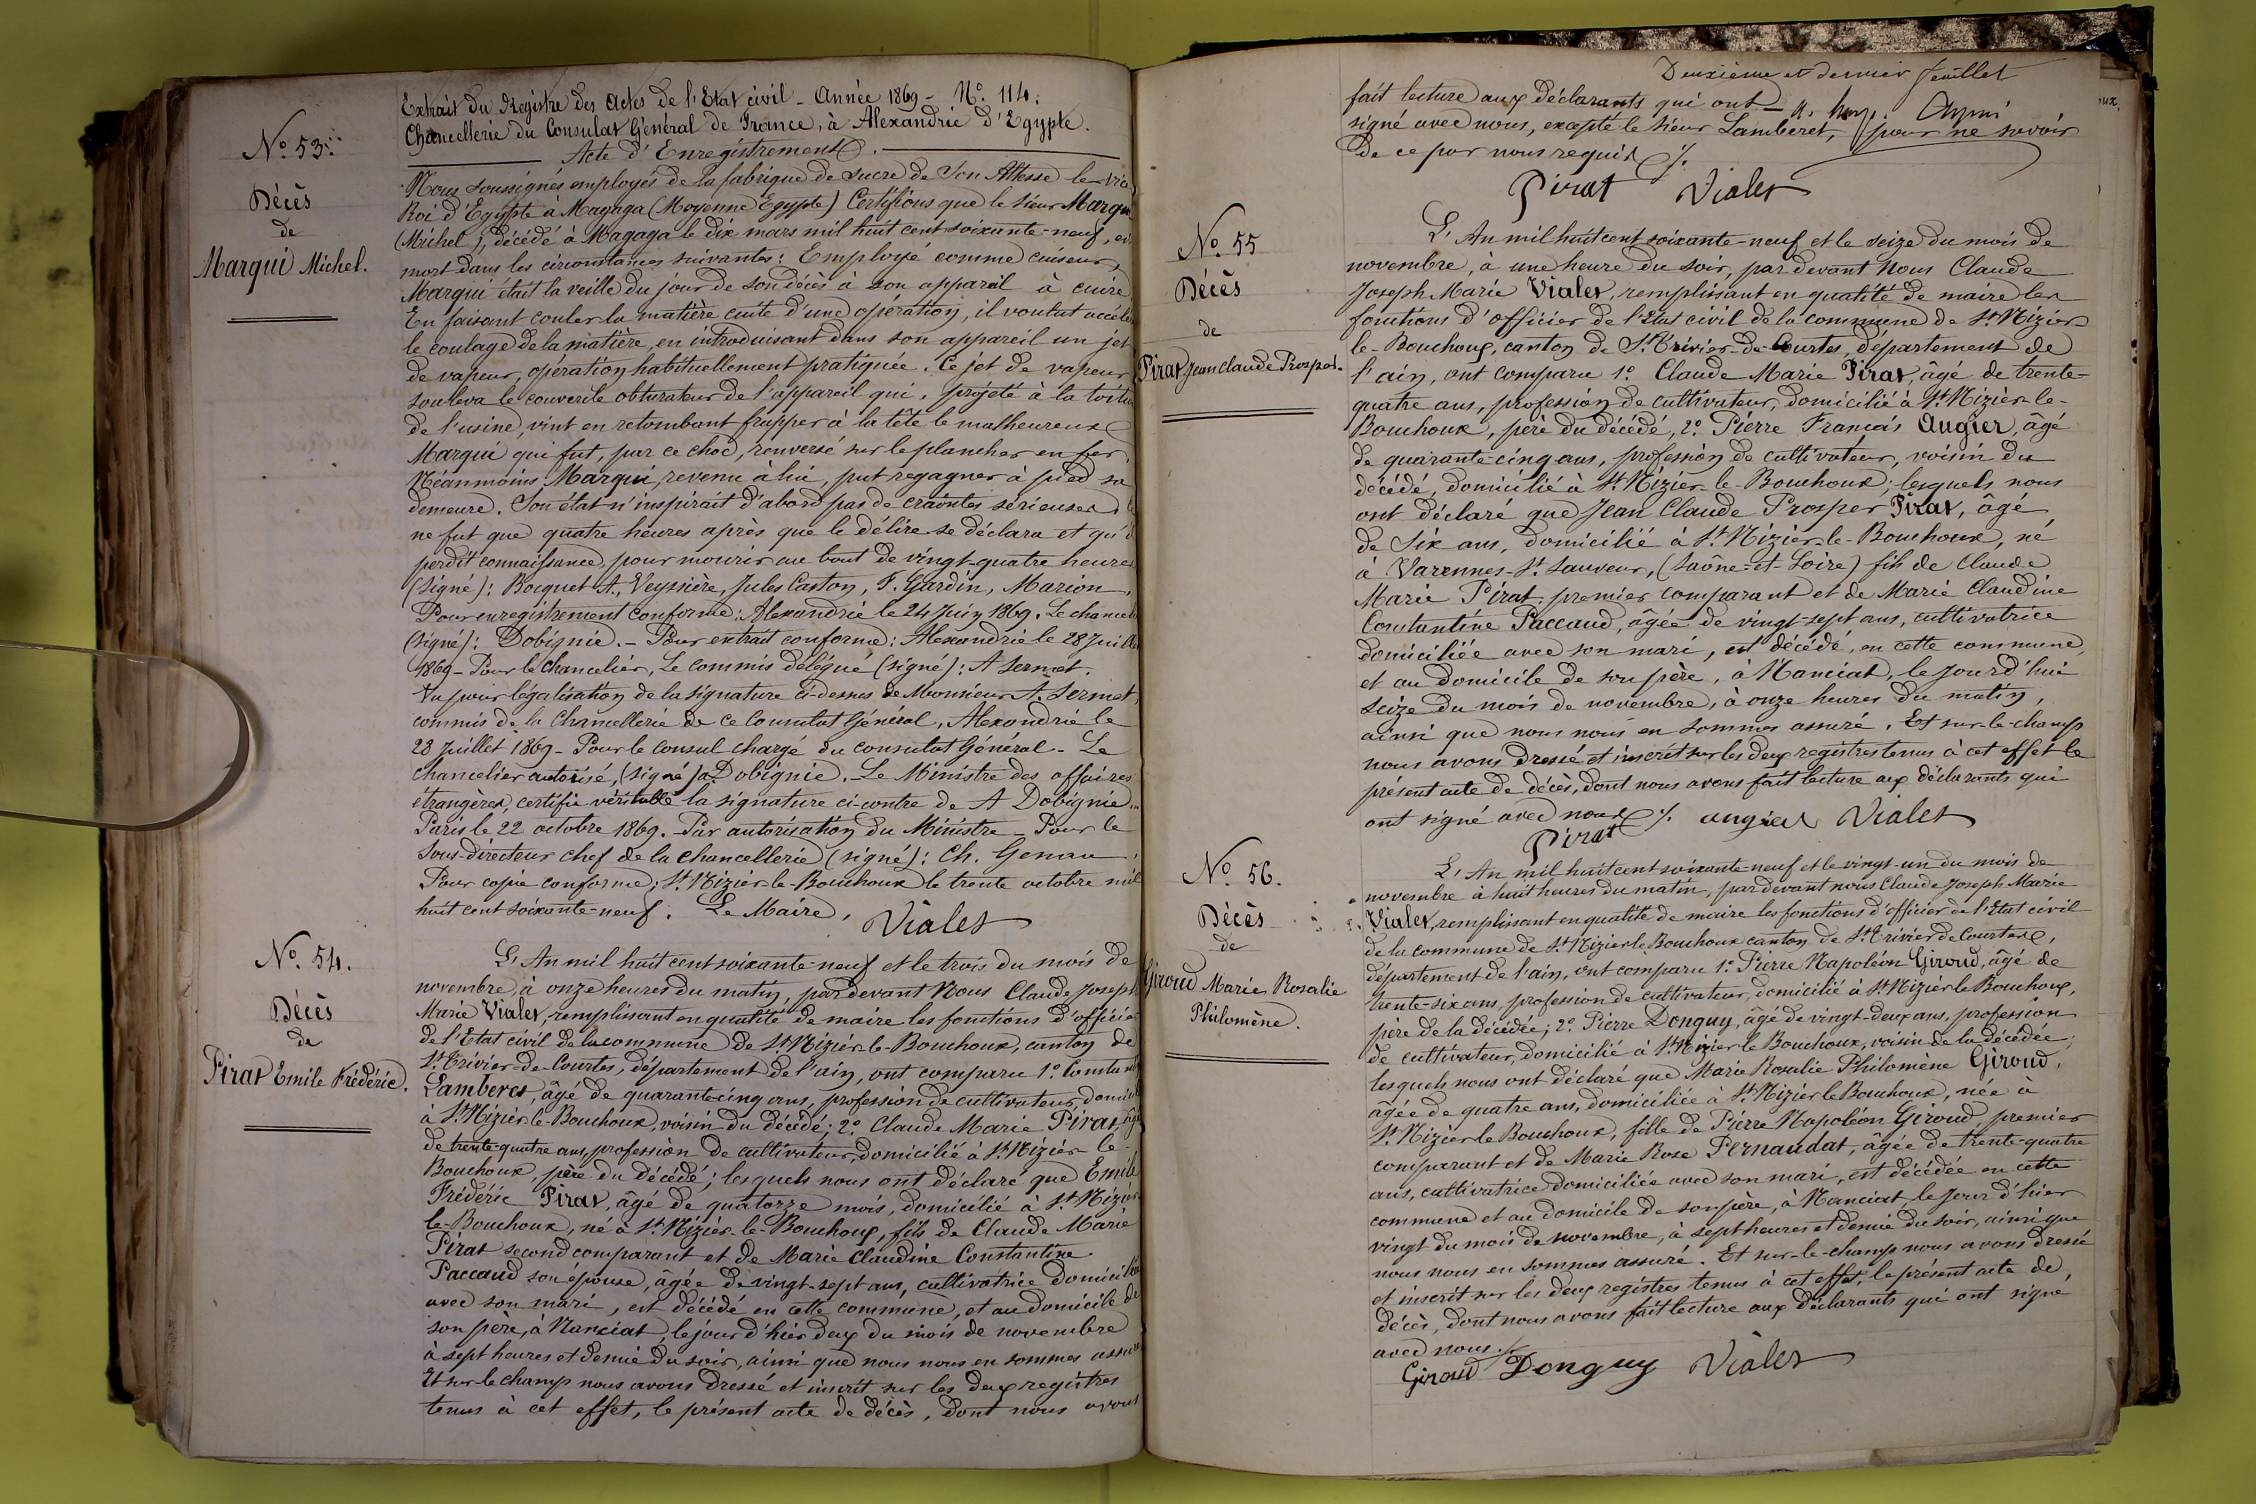 Extrait du Registre des Actes de l'Etat civil - Année 1869 - N° 114.
Chancellerie du Consulat Général de France, à Alexandrie d'Egypte.
Acte d'Enregistrement.
N° 53.
Décès
de
Marqui Michel.
Nous soussignés employés de la fabrique de sucre de Son Altesse le Vice
Roi d'Egypte à Magaga (Moyenne Egypte) Certifions que le sieur Marqui
(Michel), décédé à Magaga le dix mars mil huit cent soixante-neuf, est
mort dans les circonstances suivantes: Employé comme cuiseur,
Marqui était la veille du jour de son décès à son appareil à cuire
En faisant couler la matière cuite d'une opération, il voulut accélé
le coulage de la matière, en introduisant dans son appareil un jet
de vapeur, opération habituellement pratiquée. Ce jet de vapeur
souleva le couvercle obturateur de l'appareil qui, projeté à la toitu
de l'usine, vint en retombant frapper à la tête le malheureux
Marqui qui fut, par ce choc, renversé sur le plancher en fer.
Néanmoins Marqui, revenu à lui, put regagner à pied sa
demeure. Son état n'inspirait d'abord pas de craintes sérieuses
ne fut que quatre heures après que le délire se déclara et qu'il
perdit connaissance pour mourir au bout de vingt-quatre heures
(Signé): Bocquet A., Veyssière, Jules Caston, F. Gardin, Marion.
Pour enregistrement conforme: Alexandrie le 24 Juin 1869. Le chancel
(signé): Dobignie. - Pour extrait conforme: Alexandrie le 28 Juillet
1869 - Pour le Chancelier, Le commis délégué (signé): A Sermet.
Vu pour légalisation de la signature ci-dessus de Monsieur A. Sermet,
commis de la Chancellerie de ce Consulat Général, Alexandrie le
28 Juillet 1869 - Pour le Consul chargé du consulat Général - Le
chancelier autorisé, (signé) A Dobignie. Le Ministre des affaires
étrangères, certifie véritable la signature ci-contre de A Dobignie
Paris le 22 octobre 1869. Par autorisation du Ministre - Pour le
Sous-directeur chef de la Chancellerie (signé): Ch.
Pour copie conforme; St Nizier-le-Bouchoux le trente octobre mil
huit cent soixante-neuf. Le Maire,
Vialet
N° 54.
Décès
de
Pirat Emile Frédéric.
L'An mil huit cent soixante-neuf et le trois du mois de
novembre, à onze heures du matin, par devant Nous Claude Joseph
Marie Vialet, remplissant en qualité de maire les fonctions d'officier
de l'Etat civil de la commune de St Nizier-le-Bouchoux, canton de
St Trivier-de-Courtes, département de l'ain, ont comparu 1° Constant
Lamberet, âgé de quarante-cinq ans, profession de cultivateur, domicilié
à St Nizier-le-Bouchoux, voisin du décédé; 2° Claude Marie Pirat, âgé
de trente-quatre ans, profession de cultivateur, domicilié à St Nizier-le-
Bouchoux, père du décédé; lesquels nous ont déclaré que Emile
Frédéric Pirat, âgé de quatorze mois, domicilié à St Nizier
le-Bouchoux, né à St Nizier-le-Bouchoux, fils de Claude Marie
Pirat second comparant et de Marie Claudine Constantine
Paccaud son épouse, âgée de vingt-sept ans, cultivatrice domiciliée
avec son mari, est décédé en cette commune, et au domicile de
son père, à Nanciat, le jour d'hier deux du mois de novembre
à sept heures et demie du soir, ainsi que nous nous en sommes assuré
Et sur-le-champ nous avons dressé et inscrit sur les deux registres
tenus à cet effet, le présent acte de décès, dont nous avons
Deuxième et dernier feuillet
fait lecture aux déclarants qui ont
signé avec nous, excepté le sieur Lamberet, pour ne savoir
de ce par nous requis ./.
Pirat Vialet
N° 55
Décès
de
Pirat Jean Claude Prosper.
L'An mil huit cent soixante-neuf et le seize du mois de
novembre, à une heure du soir, par devant Nous Claude
Joseph Marie Vialet, remplissant en qualité de maire les
fonctions d'officier de l'Etat civil de la commune de St Nizier-
le-Bouchoux, canton de St Trivier-de-Courtes, département de
l'ain, ont comparu 1° Claude Marie Pirat, âgé de trente-
quatre ans, profession de cultivateur, domicilié à St Nizier-le-
Bouchoux, père du décédé, 2° Pierre François Augier, âgé
de quarante-cinq ans, profession de cultivateur, voisin du
décédé, domicilié à St Nizier-le-Bouchoux; lesquels nous
ont déclaré que Jean Claude Prosper Pirat, âgé
de Six ans, domicilié à St Nizier-le-Bouchoux, né
à Varennes-St Sauveur, (Saône-et-Loire) fils de Claude
Marie Pirat, premier comparant et de Marie Claudine
Constantine Paccaud, âgée de vingt-sept ans, cultivatrice
domiciliée avec son mari, est décédé, en cette commune,
et au domicile de son père, à Nanciat, le jourd'hui
seize du mois de novembre, à onze heures du matin,
ainsi que nous nous en sommes assuré. Et sur-le-champ
nous avons dressé et inscrit sur les deux registres tenus à cet effet le
présent acte de décès, dont nous avons fait lecture aux déclarants qui
ont signé avec nous ./. augier Vialet
Pirat
N° 56.
Décès
de
Giroud Marie Rosalie
Philomène.
L'An mil huit cent soixante-neuf et le vingt-un du mois de
novembre à huit heures du matin, par devant nous Claude Joseph Marie
Vialet, remplissant en qualité de maire les fonctions d'officier de l'Etat civil
de la commune de St Nizier le Bouchoux canton de St Trivier de Courtes,
département de l'ain, ont comparu 1° Pierre Napoléon Giroud, âgé de
trente-six ans, profession de cultivateur, domicilié à St Nizier le Bouchoux,
père de la décédée; 2° Pierre Donguy, âgé de vingt-deux ans, profession
de cultivateur, domicilié à St Nizier le Bouchoux, voisin de la décédée;
lesquels nous ont déclaré que Marie Rosalie Philomène Giroud,
âgée de quatre ans, domiciliée à St Nizier le Bouchoux, née à
St Nizier le Bouchoux, fille de Pierre Napoléon Giroud premier
comparant et de Marie Rose Pernaudat, âgée de trente-quatre
ans, cultivatrice domiciliée avec son mari, est décédée en cette
commune et au domicile de son père, à Nanciat le jour d'hier
vingt du mois de novembre, à sept heures et demie du soir, ainsi que
nous nous en sommes assuré. Et sur-le-champ nous avons dressé
et inscrit sur les deux registres tenus à cet effet, le présent acte de
décès, dont nous avons fait lecture aux déclarants qui ont signé
avec nous ./.
Giroud Donguy Vialet